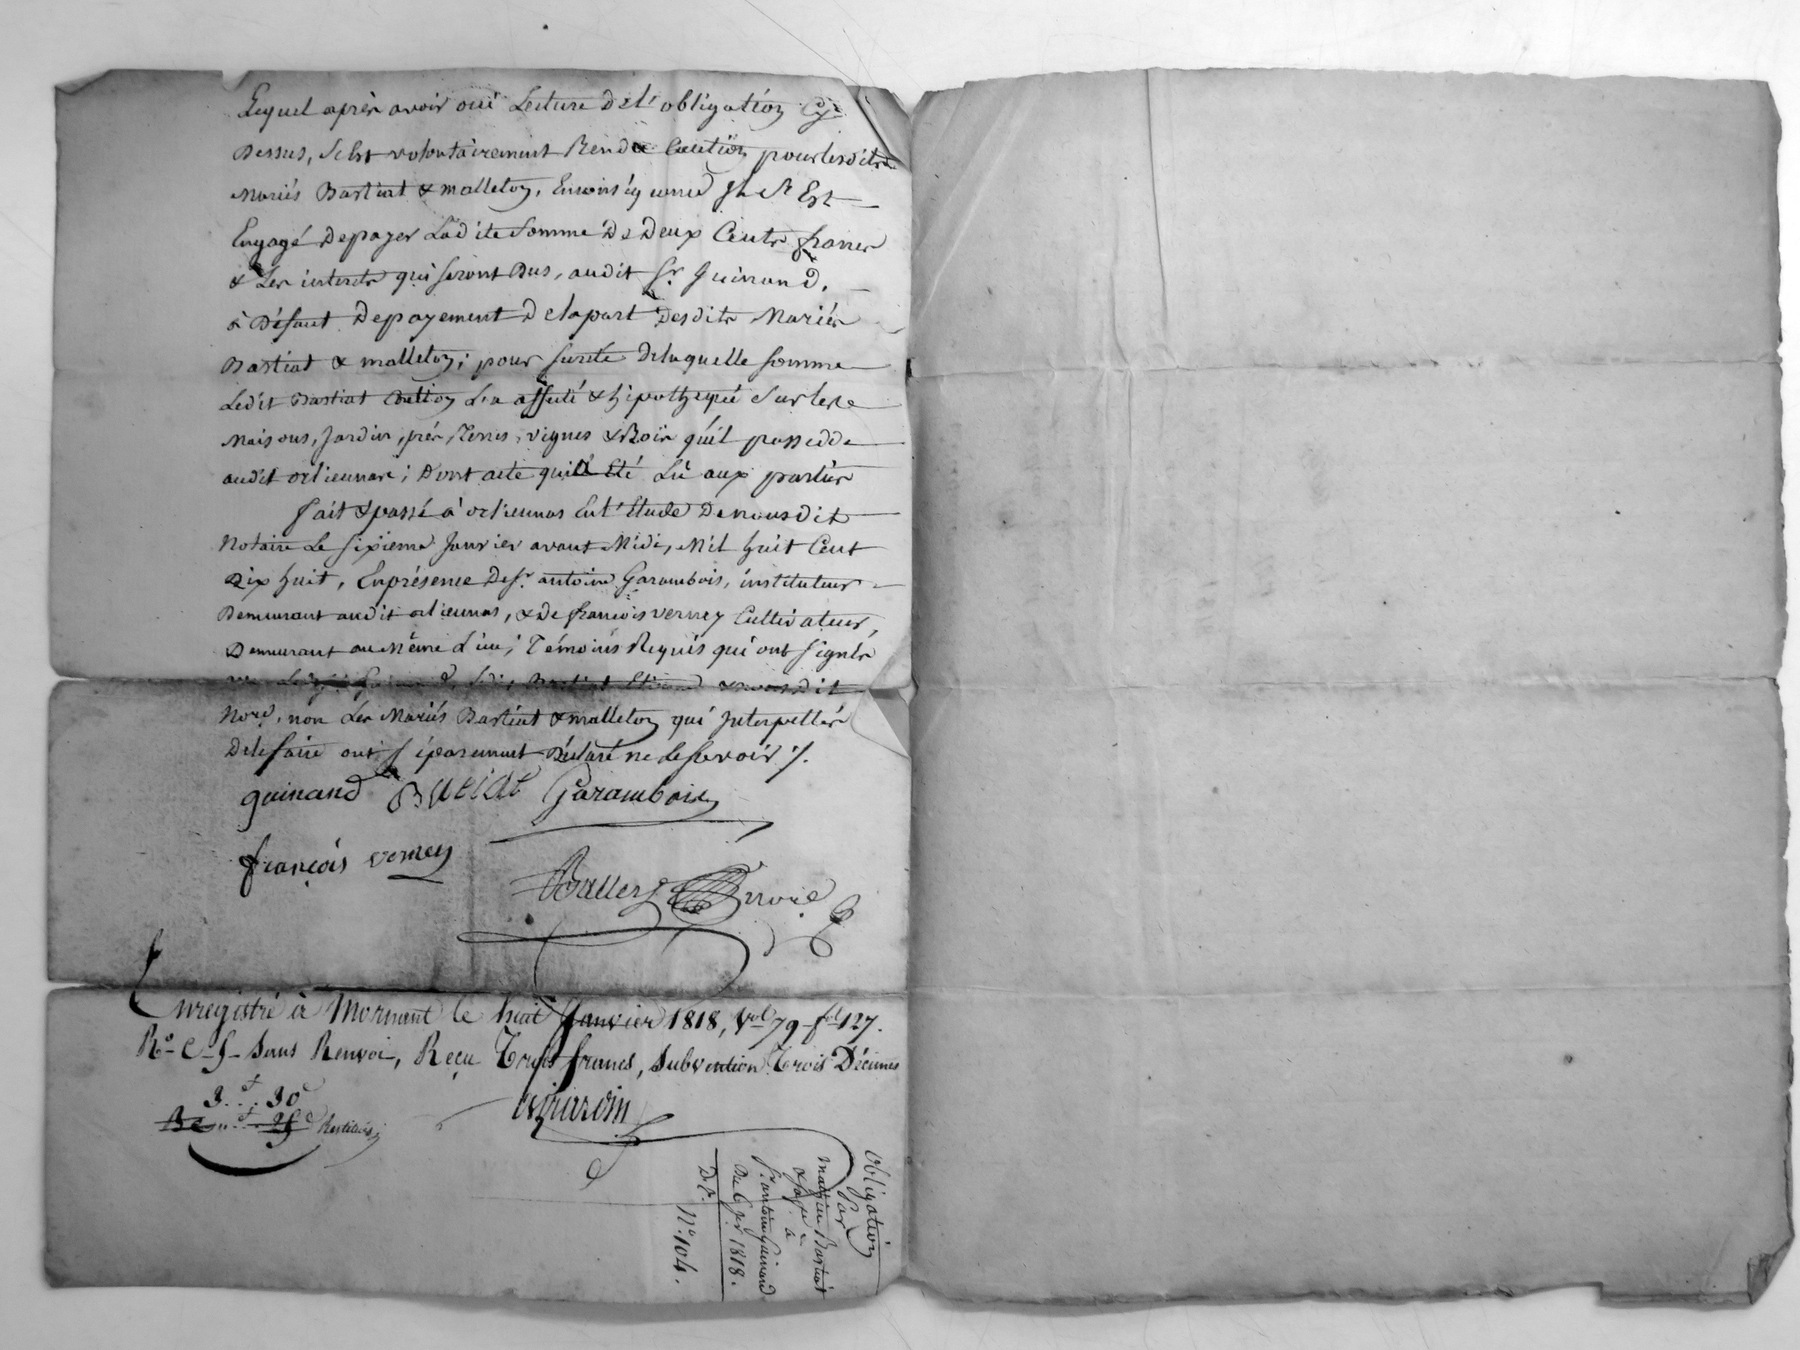 Lequel après avoir oui Lecture del'obligation Cy
Dessus, s'est volontairement Rendu Caution pour lesdits
Mariés Bastiat & malleton, En conséquence Il s'Est
Engagé depayer Ladite Somme De Deux Cents francs
& Les interets qui seront Dus, audit Sr. Guinand,
à Défaut Depayement De lapart Desdits Mariés
Bastiat & malleton; pour sureté delaquelle somme
Ledit Bastiat Caution L'a affecté & hipothequé Sur les
Maisons, Jardin, prés, Terres, vignes & Bois qu'il possedde
audit orliennas; Dont acte qui a Eté Lû aux parties
fait & passé à orliennas En l'Etude De nousdit
Notaire Le sixieme Janvier avant Midi, Mil huit Cent
Dix huit, En présence De Sr. antoine Garambois, instituteur
Demeurant audit orliennas, & De françois verney Cultivateur,
Demeurant au Même Lieu; Témoins Requis qui ont signés
& nousdit
Nore, non Les Mariés Bastiat & malleton qui Interpellés
Dele faire ont séparément Déclaré ne le savoir ./.
guinand Garambois
françois verney
nore
Enregistré à Mornant le huit Janvier 1818, Vol 79 fol 127.
Ro C 5 Sans Renvoi, Reçu Trois francs, subvention Trois Décimes
3f..30c
Obligation
Par
Mathieu Bastiat
à
Sr. antoine Guinand
Du 6 Jer 1818.
No. 104.